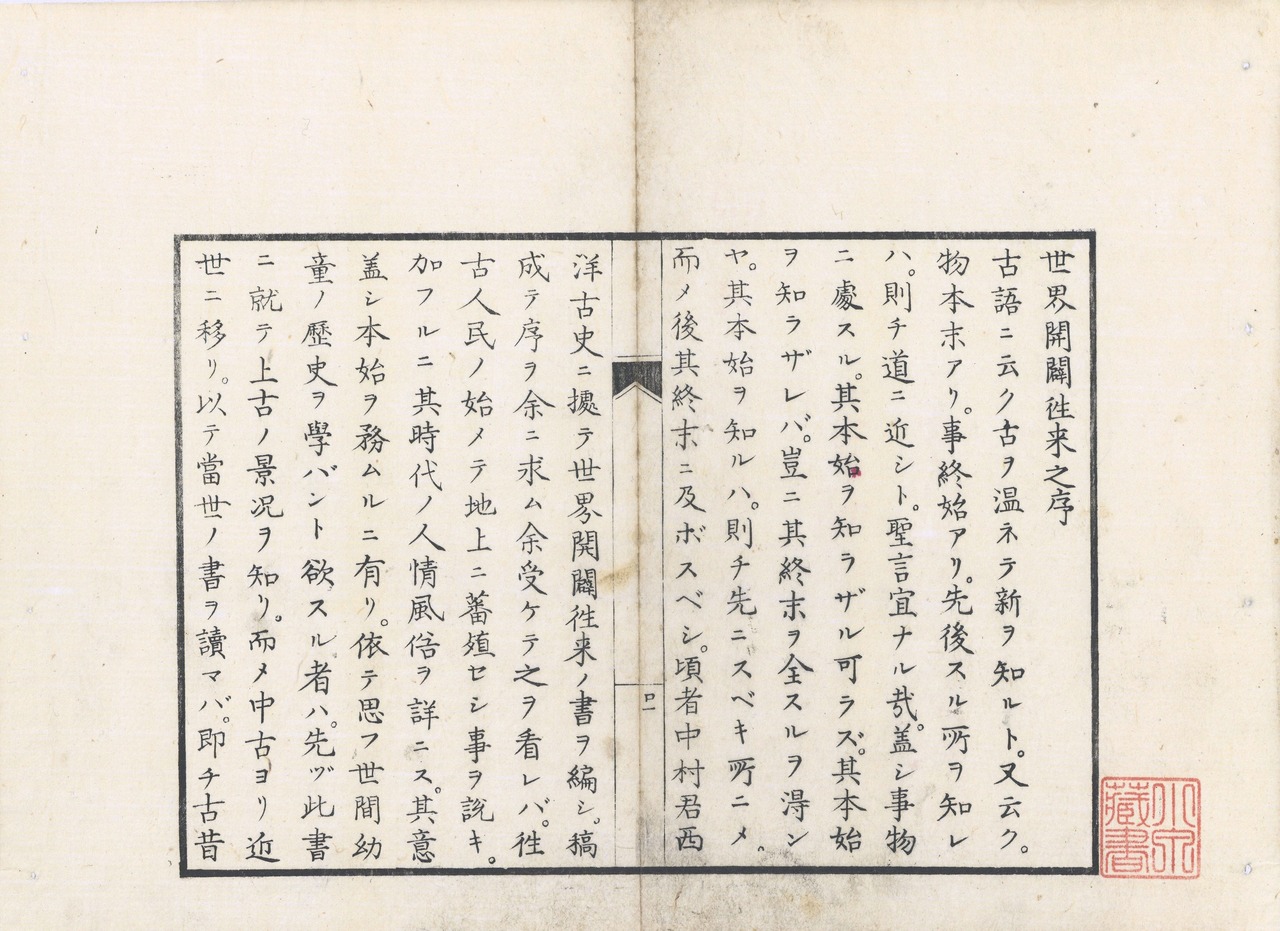 世界開闢徃来之序
古語ニ云ク古ヲ温ネテ新ヲ知ルト。又云ク。
物本末アリ。事終始アリ。先後スル所ヲ知レ
ハ。則チ道ニ近シト。聖言宜ナル哉。蓋シ事物
ニ處スル。其本始ヲ知ラザル可ラズ。其本始
ヲ知ラザレバ。豈ニ其終末ヲ全スルヲ得ン
ヤ。其本始ヲ知ルハ。則チ先ニスベキ所ニメ。
而メ後其終末ニ及ボスベシ。頃者中村君西
洋古史ニ據テ世界開闢徃来ノ書ヲ編シ。稿
成テ序ヲ余ニ求ム余受ケテ之ヲ看レバ。徃
古人民ノ始メテ地上ニ蕃殖セシ事ヲ説キ。
加フルニ其時代ノ人情風俗ヲ詳ニス。其意
盖シ本始ヲ務ムルニ有リ。依テ思フ世間幼
童ノ歷史ヲ學バント欲スル者ハ。先ヅ此書
ニ就テ上古ノ景况ヲ知リ。而メ中古ヨリ近
世ニ移リ。以テ當世ノ書ヲ讀マバ。即チ古昔
口一
小宗
藏書